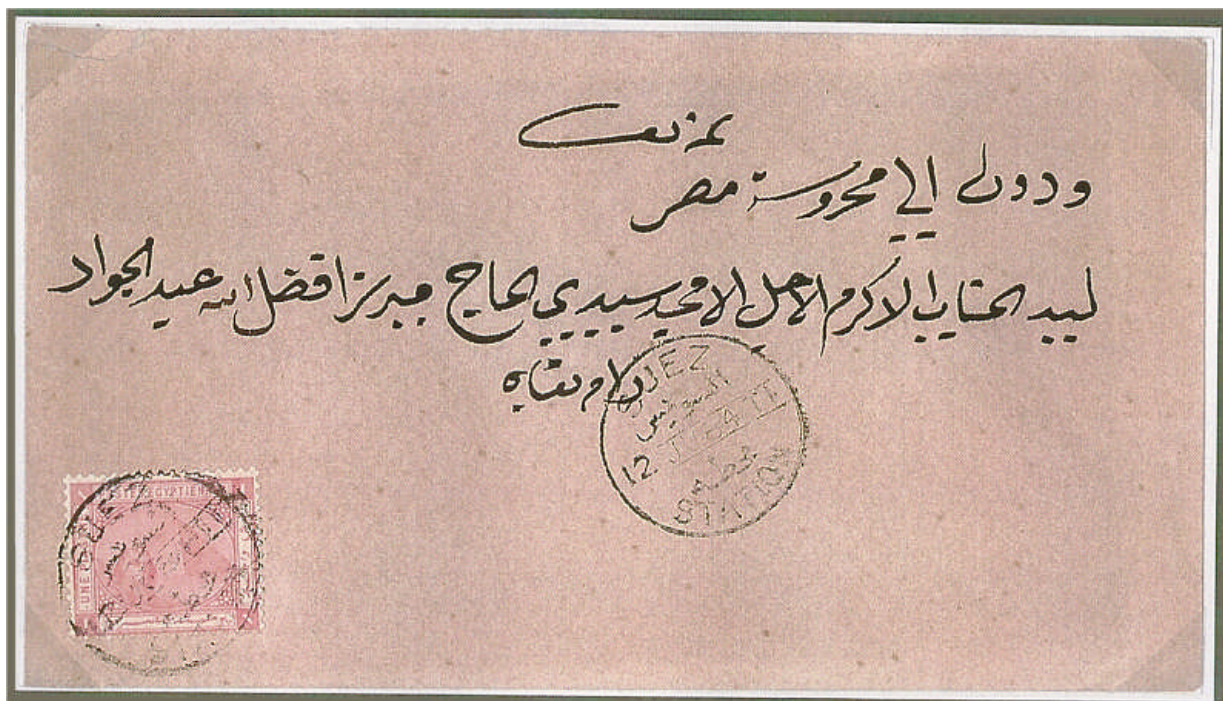 بمنه تعـ
ودود الي محروسة مصر
ليد الجناب الاكرم الاجل الامجد سيدي الحاج ميرزا فضل الله عبد الجواد
دام بقاه
SUEZ
السويس
12 J
محطه
STATION
POSTES EGYPTIENNES
UNE
SUEZ